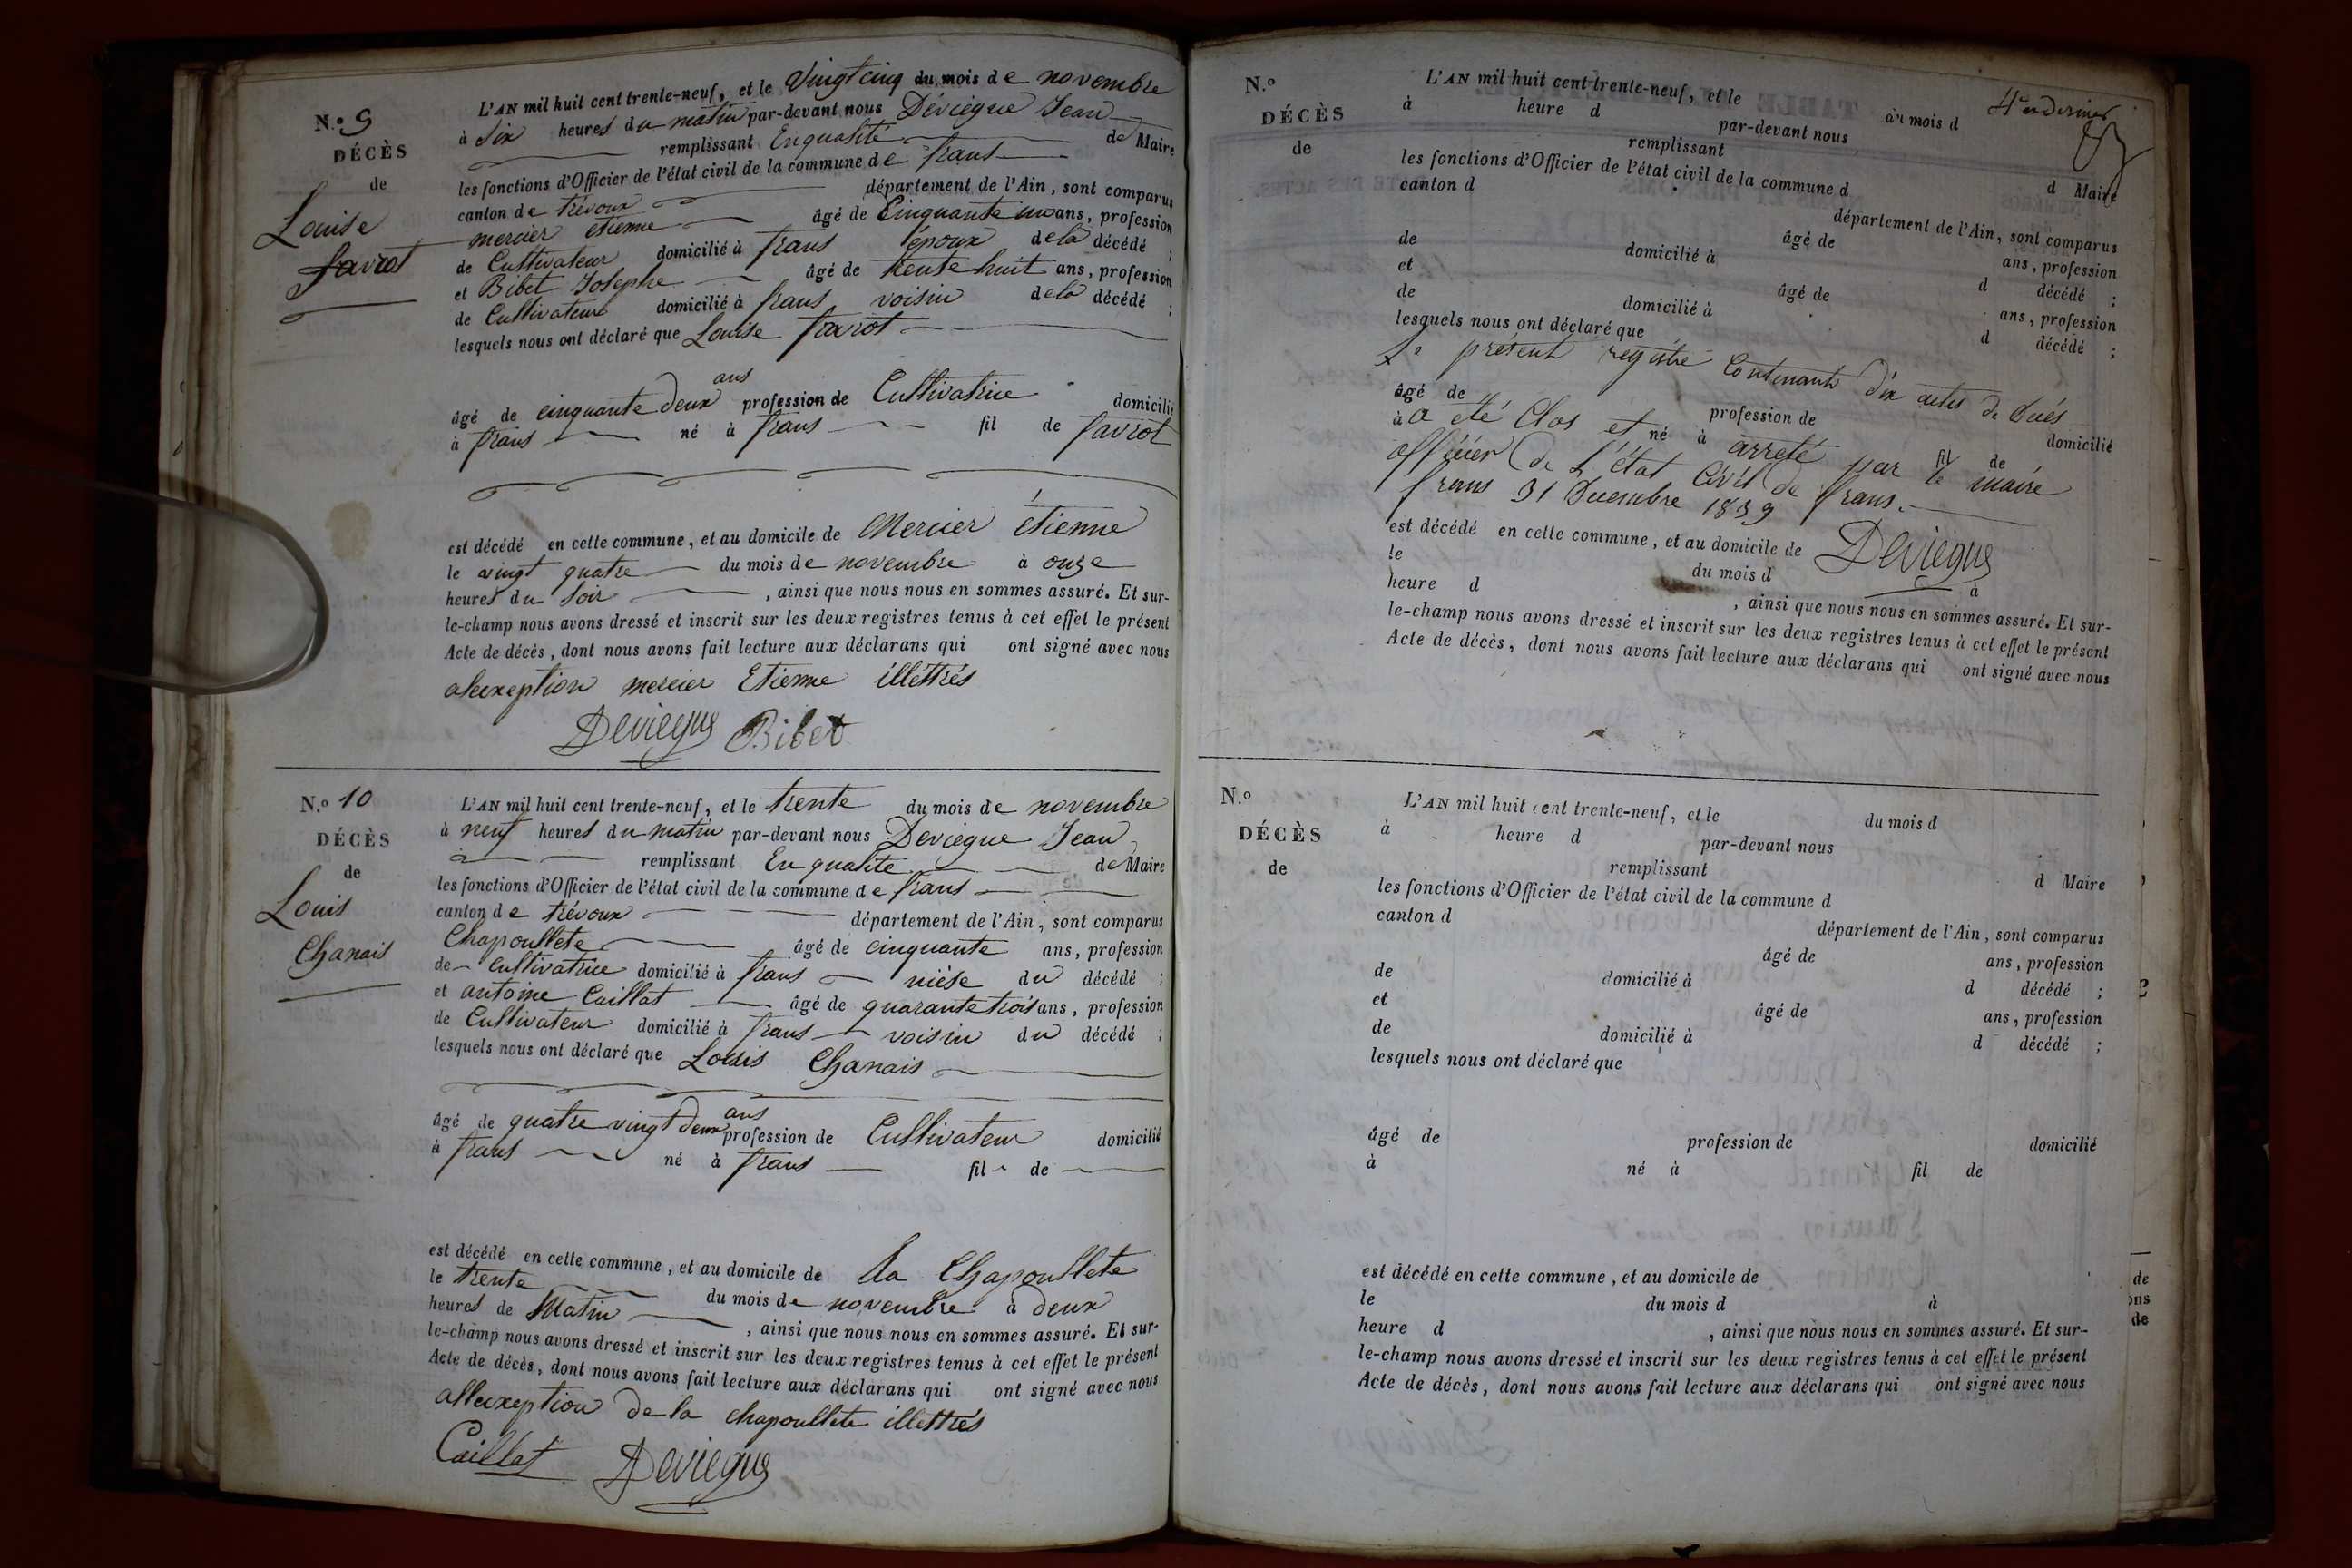 N.o 9
DÉCÈS
de
Louise
favrot
L'AN mil huit cent trente-neuf, et le Vingt cinq du mois de novembre
à Six heures du matin par-devant nous Déviegue Jean
remplissant En qualité de Maire
les fonctions d'Officier de l'état civil de la commune de frans
canton de trévoux département de l'Ain, sont comparus
mercier etienne âgé de Cinquante un ans, profession
de Cultivateur domicilié à frans époux de la décédé ;
et Bibet Josephe âgé de trente huit ans, profession
de Cultivateur domicilié à frans voisin de la décédé ;
lesquels nous ont déclaré que Louise favrot
ans
âgé de cinquante deux profession de Cultivatrice domicilié
à frans né à frans fil de favrot
est décédé en cette commune, et au domicile de Mercier étienne
le vingt quatre du mois de novembre à onze
heures du Soir , ainsi que nous nous en sommes assuré. Et sur-
le-champ nous avons dressé et inscrit sur les deux registres tenus à cet effet le présent
Acte de décès, dont nous avons fait lecture aux déclarans qui ont signé avec nous
aleexeption mercier Etienne illéttrés
Deviegue Bibet
N.o 10
DÉCÈS
de
Louis
Chanais
L'AN mil huit cent trente-neuf, et le trente du mois de novembre
à neuf heures du matin par-devant nous Deviegue Jean
remplissant En qualité de Maire
les fonctions d'Officier de l'état civil de la commune de frans
canton de trévoux département de l'Ain, sont comparus
Chapoullete âgé de cinquante ans, profession
de Cultivatrice domicilié à frans nièse du décédé ;
et antoine Caillat âgé de quarante trois ans, profession
de Cultivateur domicilié à frans voisin du décédé ;
lesquels nous ont déclaré que Louis Chanais
ans
âgé de quatre vingt deux profession de Cultivateur domicilié
à frans né à frans fil de
est décédé en cette commune, et au domicile de la Chapoullete
le trente du mois de novembre à deux
heures de Matin , ainsi que nous nous en sommes assuré. Et sur-
le-champ nous avons dressé et inscrit sur les deux registres tenus à cet effet le présent
Acte de décès, dont nous avons fait lecture aux déclarans qui ont signé avec nous
alleexeption de la chapoullete illettrés
Caillat Deviegue
4e et Dernier
N.o
DÉCÈS
de
L'AN mil huit cent trente-neuf, et le du mois d
à heure d par-devant nous
remplissant d Maire
les fonctions d'Officier de l'état civil de la commune d
canton d département de l'Ain, sont comparus
âgé de ans, profession
de domicilié à d décédé ;
et âgé de ans, profession
de domicilié à d décédé ;
lesquels nous ont déclaré que
Le présent registre Contenant dix actes de Décés
âgé de profession de domicilié
à né à fil de
a été Clos et arreté par le maire
officier de L'état Civil de frans.
frans 31 Decembre 1839
est décédé en cette commune, et au domicile de
Deviegue
le du mois d à
heure d , ainsi que nous nous en sommes assuré. Et sur-
le-champ nous avons dressé et inscrit sur les deux registres tenus à cet effet le présent
Acte de décès, dont nous avons fait lecture aux déclarans qui ont signé avec nous
N.o
DÉCÈS
de
L'AN mil huit cent trente-neuf, et le du mois d
à heure d par-devant nous
remplissant d Maire
les fonctions d'Officier de l'état civil de la commune d
canton d département de l'Ain, sont comparus
âgé de ans, profession
de domicilié à d décédé ;
et âgé de ans, profession
de domicilié à d décédé ;
lesquels nous ont déclaré que
âgé de profession de domicilié
à né à fil de
est décédé en cette commune, et au domicile de
le du mois d à
heure d , ainsi que nous nous en sommes assuré. Et sur-
le-champ nous avons dressé et inscrit sur les deux registres tenus à cet effet le présent
Acte de décès, dont nous avons fait lecture aux déclarans qui ont signé avec nous
de
ons
de